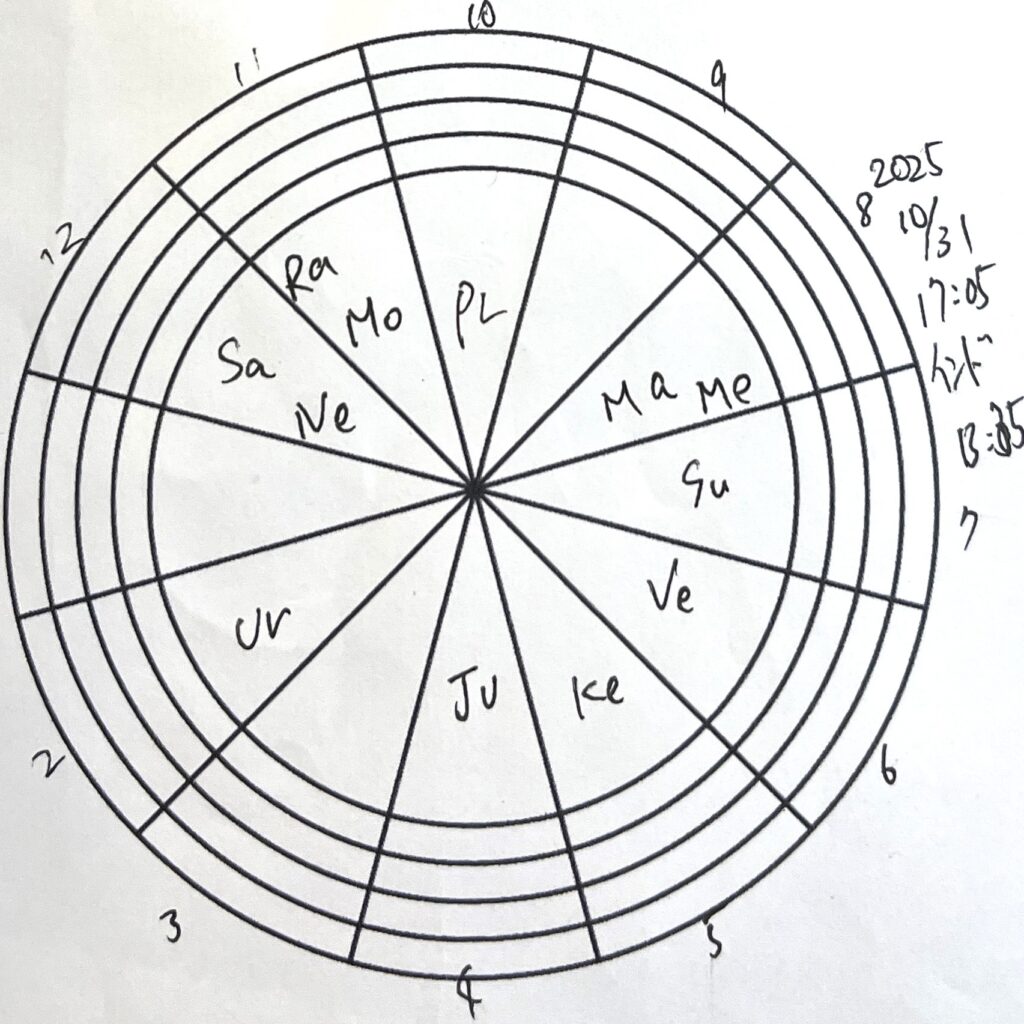 10
11
9
12
8
2025
10/31
17:05
インド
13:35
7
Ra
Mo
PL
Sa
Ne
Ma Me
Su
Ve
Ur
Ju
Ke
2
6
3
5
4